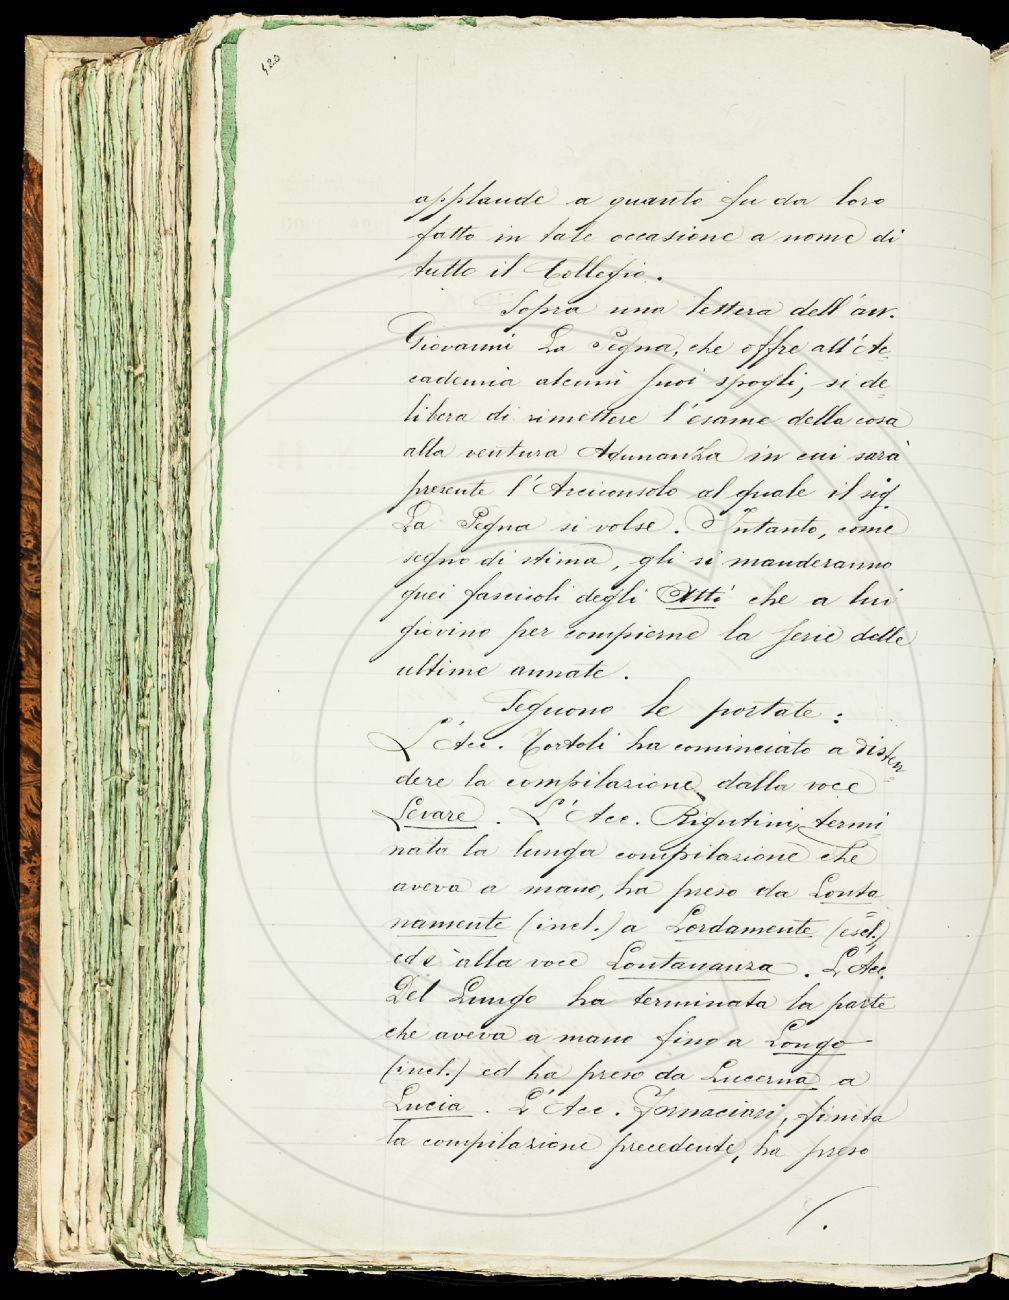 420
applaude a quanto fu da loro
fatto in tale occasione a nome di
tutto il Collegio.
Sopra una lettera dell'avv.
Giovanni La Pegna, che offre all'Ac=
cademia alcuni suoi spogli, si de=
libera di rimettere l'esame della cosa
alla ventura Adunanza in cui sarà
presente l'Arciconsolo al quale il sig.
La Pegna si volse. Intanto, come
segno di stima, gli si manderanno
quei fascicoli degli Atti che a lui
giovino per compierne la serie delle
ultime annate.
Seguono le portate:
L'Acc. Tortoli ha cominciato a disten=
dere la compilazione dalla voce
Levare. L'Acc. Rigutini, termi=
nata la lunga compilazione che
aveva a mano, ha preso da Lonta=
namente (incl.) a Lordamente (escl.)
ed è alla voce Lontananza. L'Acc.
Del Lungo ha terminata la parte
che aveva a mano fino a Longo
(incl.) ed ha preso da Lucerna a
Lucia. L'Acc. Fornaciari, finita
la compilazione precedente, ha preso